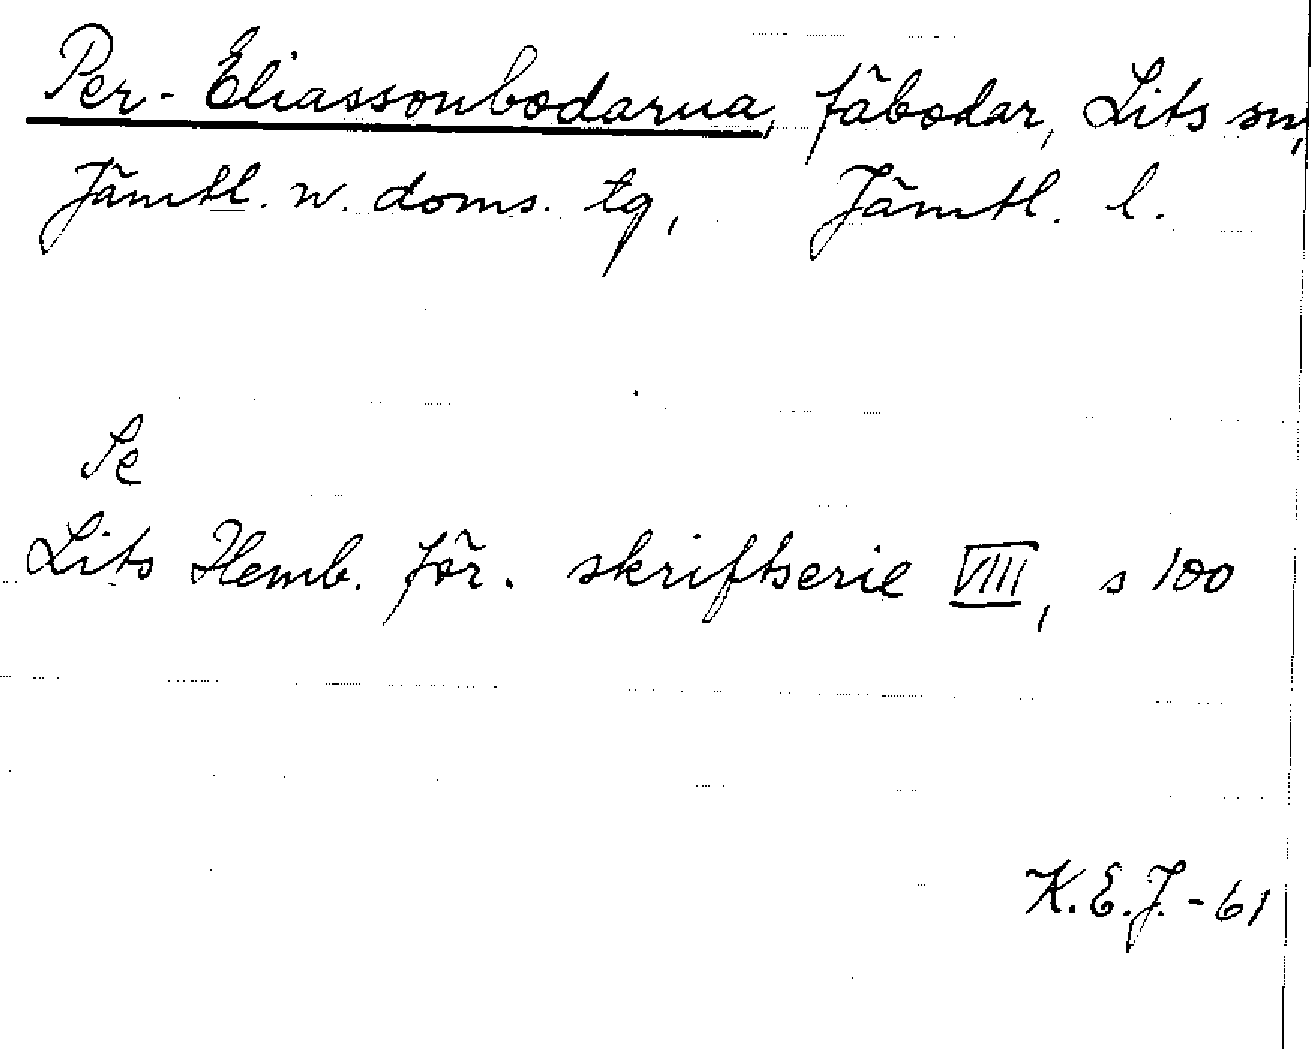 Per-Eliassonbodarna, fäbodar, Lits sn,
Jämtl. n. doms. tg, Jämtl. l.
Se
Lits Hemb. för. skriftserie VIII, s 100
K.E.J. -61